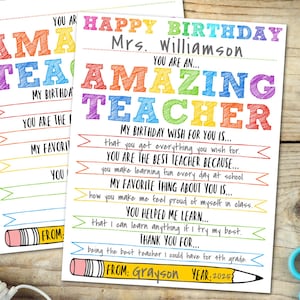 HAPPY BIRTHDAY
Mrs. Williamson
YOU ARE AN...
AMAZING
TEACHER
MY BIRTHDAY WISH FOR YOU IS...
that you get everything you wish for.
YOU ARE THE BEST TEACHER BECAUSE...
you make learning fun every day at school
MY FAVORITE THING ABOUT YOU IS...
how you make me feel proud of myself in class.
YOU HELPED ME LEARN...
that I can do anything if I try my best.
THANK YOU FOR...
being the best teacher I could have for 4th grade.
FROM: Grayson YEAR: 2025
YOU ARE
AMA
TEAC
MY BIRTHDAY
YOU ARE THE B
MY FAVORI
YO
FROM: